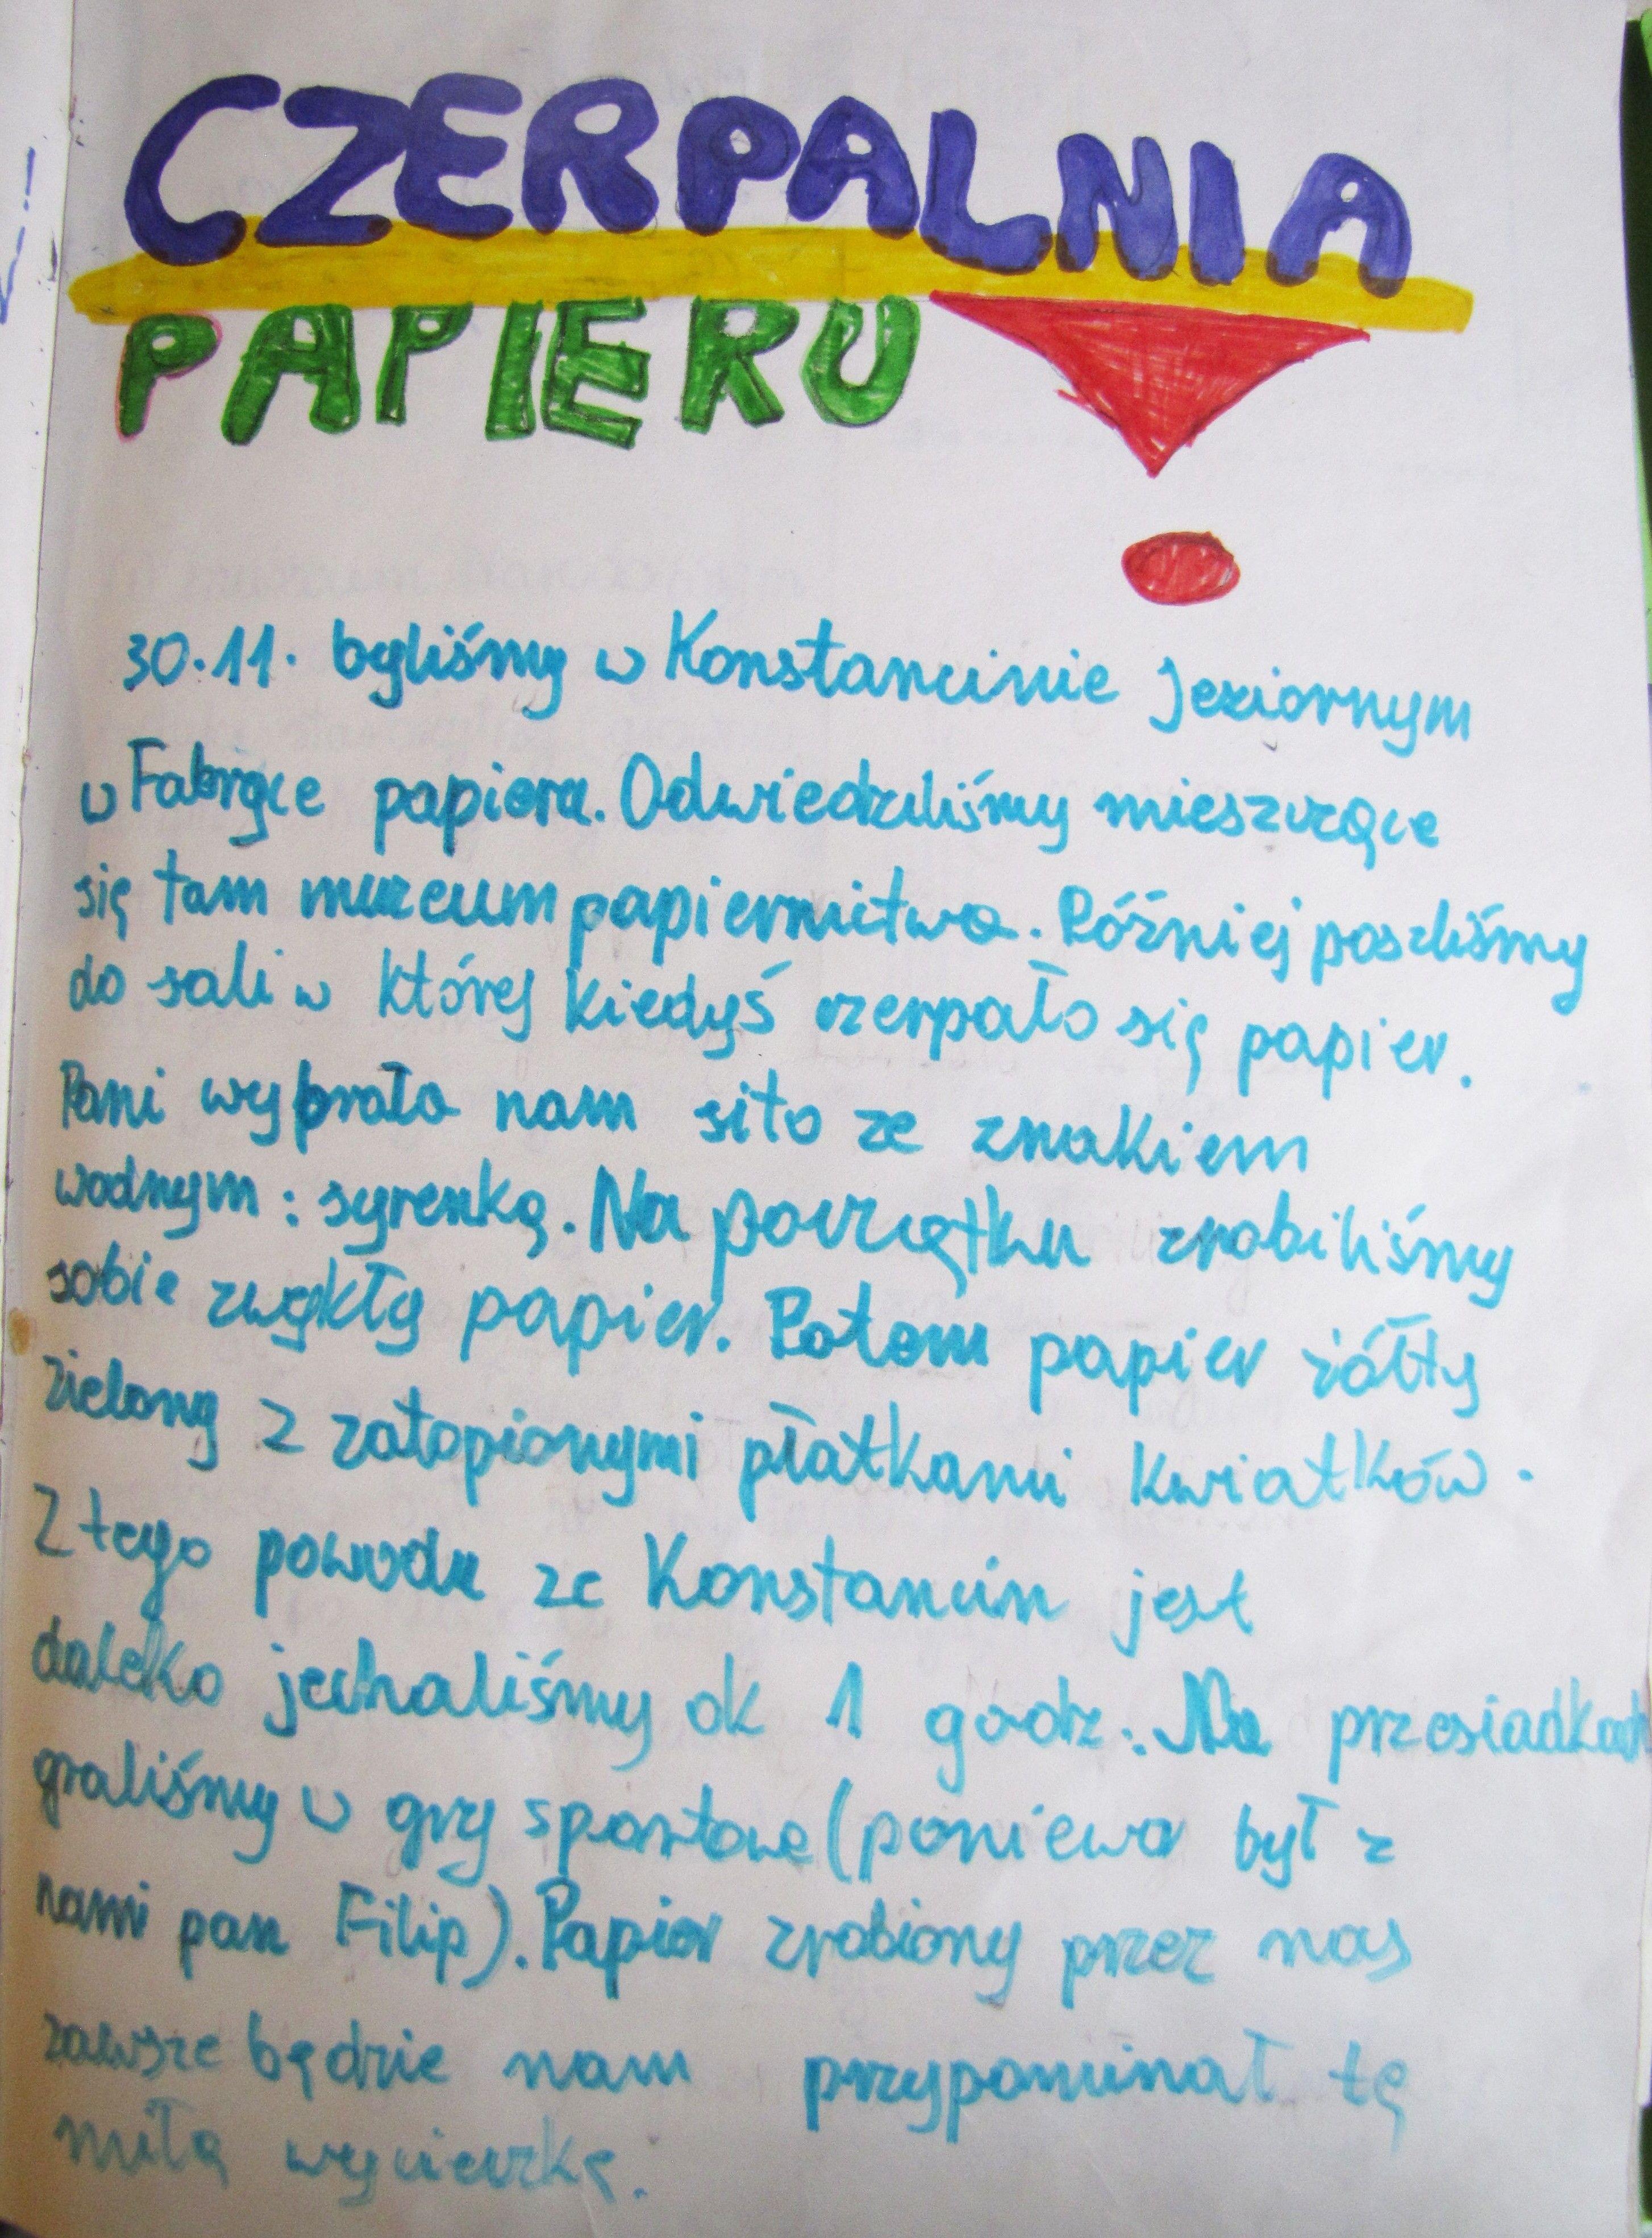 CZERPALNIA
PAPIERU
30.11. byliśmy w Konstancinie Jeziornym
w Fabryce papieru. Odwiedziliśmy mieszczące
się tam muzeum papiernictwa. Później poszliśmy
do sali w której kiedyś czerpało się papier.
Pani wybrała nam sito ze znakiem
wodnym: syrenką. Na początku zrobiliśmy
sobie zwykły papier. Potem papier żółty
zielony z zatopionymi płatkami kwiatków.
Z tego powodu ze Konstancin jest
daleko jechaliśmy ok 1 godz. Na przesiadkach
graliśmy w gry sportowe (poniewa był z
nami pan Filip). Papier zrobiony przez nas
zawsze będzie nam przypominał tę
miłą wycieczkę.